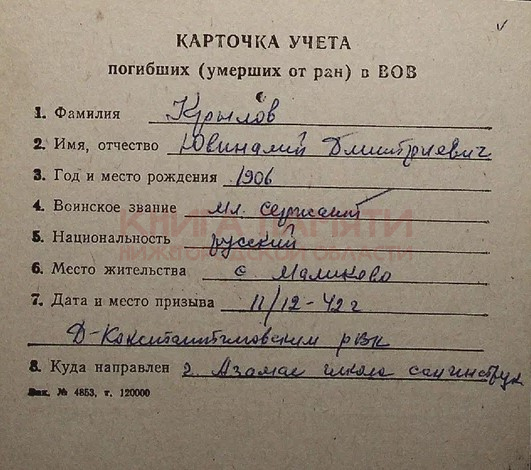 КАРТОЧКА УЧЕТА
погибших (умерших от ран) в ВОВ
1. Фамилия Крылов
2. Имя, отчество Ювиналий Дмитриевич
3. Год и место рождения 1906
4. Воинское звание мл. сержант
КНИГА ПАМЯТИ
5. Национальность русский
НИЖЕГОРОДСКОЙ ОБЛАСТИ
6. Место жительства с Маликово
7. Дата и место призыва 11/12-42г
Д-Константиновским рвк
8. Куда направлен г. Азамас школа санинструк
Зак. № 4853, т. 120000